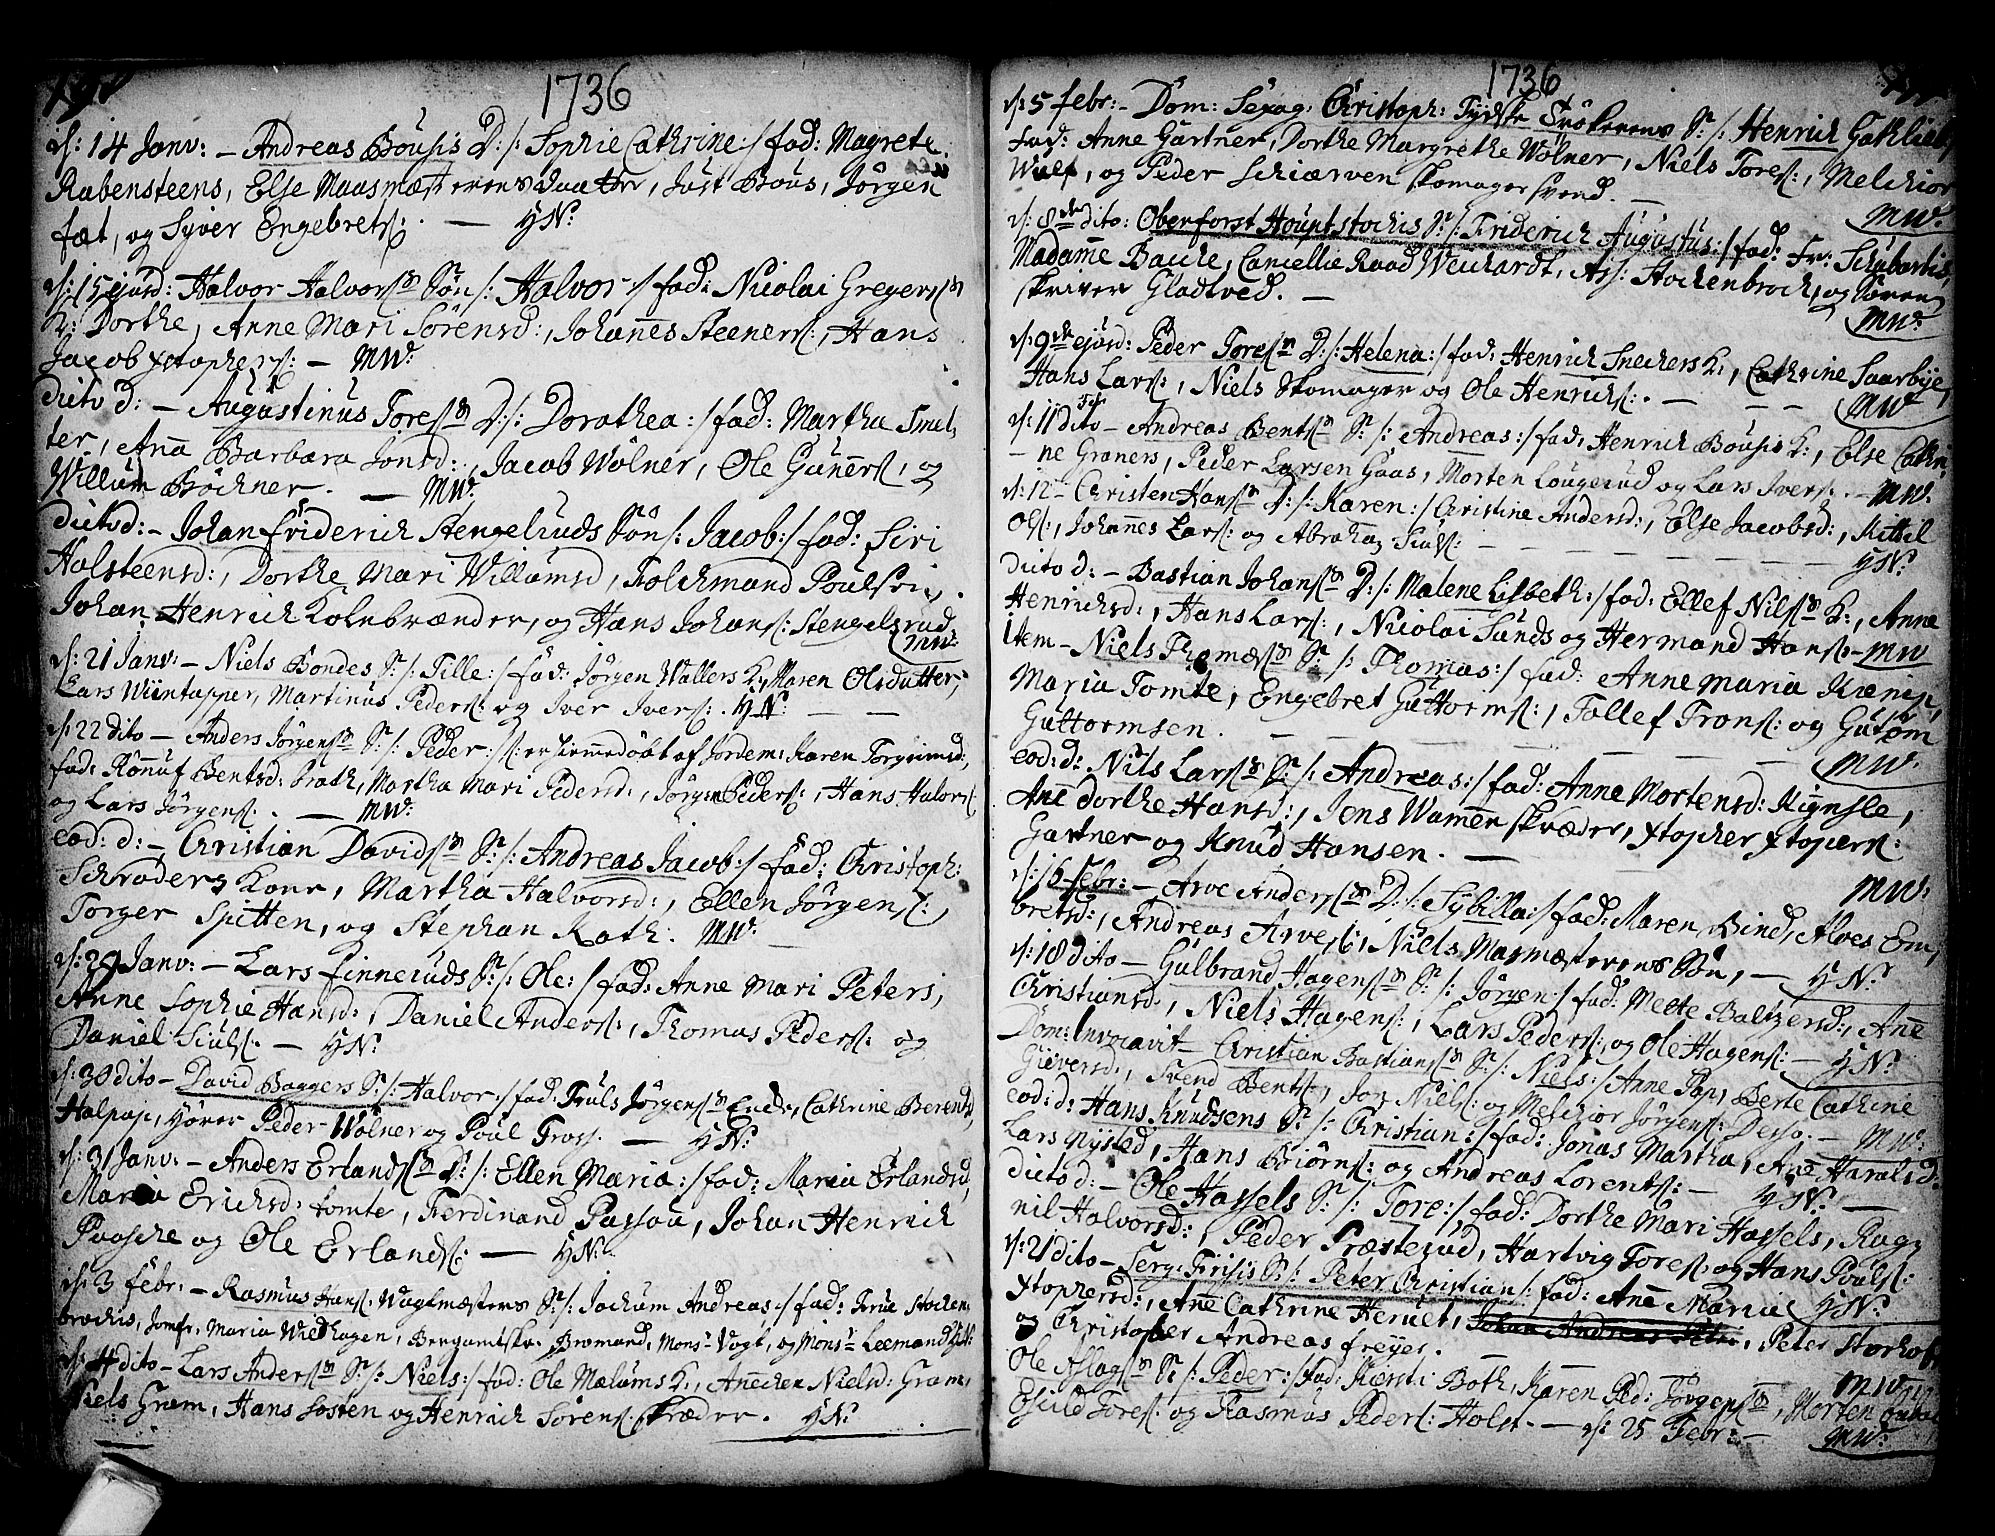 1736
d: 14 Janv: – Andreas Bousis D:/: Sophie Cathrine:/ fad: Magrete
Rabensteens, Else Maasmæsterens daatter, Just Bous, Jörgen
fæt, og Syver Engebrets: — HN:
d: 15 ejusd: Halvor Halvorsns Sön /: Halvor :/ fad: Nicolai Gregersns
K: Dorthe, Anne Mari Sörensd:, Johannes Steeners:, Hans
Jacob Xstophers: – MW:
Dicto d: – Augustinus Toresns D:/: Dorothea :/ fad: Martha Smel,
ter, Anna Barbara Jonsd:, Jacob Wölner, Ole Guners:, og
Willum Böchner. — MW:
Dictod: – Johan Friderich Stengelruds Sön /: Jacob:/ fad: Siri
Halsteensd:, Dorthe Mari Willumsd, Folchmand Poulsön,
Johan Henrich Kolnbrænder, og Hans Johans: Stengelsrud
MW:
d: 21 Janv: – Niels Bondes S:/: Tille:/ fad: Jörgen Wallers K:, Maren Olsdatter,
Lars Wiintapper, Martinus Peders: og Iver Ivers:. HN:
d: 22 Dito – Anders Jörgensns S:/: Peder:/ er hiemmedöbt af Jordem: Karen Torgeirsd:,
fad: Rönnuf Bentsd: Brath, Martha Mari Pedersd:, Jörgen Peders:, Hans Halvors:
og Lars Jörgens:. — MW:
eod: d: – Christian Davidsns S:/: Andreas Jacob:/ fad: Christoph:
Schroders Kone, Martha Halvorsd:, Ellen Jörgens:,
Torger Spitten, og Stephan Rath: MW:
d: 29 Janv: – Lars Finneruds S:/: Ole:/ fad: Anne Mari Peters,
Anne Sophie Hansd:, Daniel Anders:, Thomas Peders: og
Daniel Siuls: – HN:
d: 30 dito – David Baggers S:/: Halvor:/ fad: Truls Jörgensns Enche, Cathrine Berents,
Halpap, Hörer Peder Wölner og Poul Tross. — HN:
d: 31 Janv: – Anders Erlandsns D:/: Ellen Maria:/ fad: Maria Erlandsd,
Maria Erichsd: tomte, Ferdinand Passau, Johan Henrich
Paasche og Ole Erlands: — HN:
d: 3 febr: – Rasmus Hans: Vogtmæsters S:/: Jochum Andreas:/ fad: Frue Stochen,
brochis, Jomfr: Maria Wiedhagen, Bergamtskr: Bromand, Mons: Vogt, og Mons: Leemand
d: 4 dito – Lars Andersns S:/: Niels:/ fad: Ole Mælums K:, Annechen Nielsd: Gram,
Niels Gram, Hans Sosten og Henrich Sörens: skræder. HN:
1736
d: 5 febr: – Dom: Sexag: Christoph: Tydske S:/: Henrich Gothlieb:/
fad: Anne Gartner, Dorthe Margrethe Wölner, Niels Tores:, Melchior
Wulf, og Peder Schiærven skomager svend. –
MW:
d: 8de dito: Oberforst Houptstochis S:/: Friderich Augustus:/ fad: Fr: Schubartis,
Madame Bache, Cancellie Raad Weichardt, As: Stochenbroch, og Soren
skriver Gladtved. –
MW:
d: 9de ejusd: Peder Toresns D:/: Helena:/ fad: Henrich Snechers K:, Cathrine Saarbye,
Hans Lars:, Niels Skomager og Ole Henrichs:. –
MW
d: 11 dito – Andreas Bentsns S:/: Andreas:/ fad: Henrich Bousis K:, Else Cathri,
– ne Graners, Peder Larsen Gaas, Morten Lougerud og Lars Ivers: – MW:
d: 12 – Christen Hansns D:/: Karen:/ Christine Andersd:, Else Jacobsd:, Kittil
Ols:, Johannes Lars: og Abraham Siuls:
HN:
dicto d: – Bastian Johansns D:/: Malene Lisbeth:/ fad: Ellef Nilsns K:, Anne
Henrichsd:, Hans Lars:, Nicolai Sunds og Hermand Hans: – MW
Item – Niels Thomæsns S:/: Thomas:/ fad: Anne Maria
Maria Tomte, Engebret Guttorms:, Tollef Trons: og Gutorm
Guttormsen.
MW:
eod: d: Nils Larsns S:/: Andreas:/ fad: Anne Mortensd: Kiynsle,
Ane Dorthe Hansd:, Jens Wamen skræder, Xtopher Xtopers:
Gartner og Knud Hansen. —
MW:
d: 16 Febr: – Arve Andersns D:/: Sybilla:/ fad: Maren Bind, Alves Em,
bretsd:, Andreas Arves:, Niels Masmæsterens Sön, – HN:
d: 18 dito – Gulbrand Hagensns S:/: Jörgen:/ fad: Mette Baltzersd:, Ane
Christiansd:, Niels Hagens:, Lars Peders:, og Ole Hagens: – HN:
Dom: Invocavit – Christian Bastiansns S:/: Niels:/ Anne Pop, Berte Cathrine
Gieversd:, Svend Bents:, Jon Niels: og Melchior Jörgens: Desso. – MW:
eod: d: Hans Knudsens S:/: Christian:/ fad: Jonas Martha, Ane Haralsd:
Lars Nysted, Hans Biörns: og Andreas Lorents: – HN:
Dicto d: – Ole Hassels S:/: Tore:/ fad: Dorthe Mari Hassels, Rag,
nil Halvorsd:, Peder Præsterud, Hartvig Tores: og Hans Pouls:
HN:
d: 21 dito – Serg: Friisis S:/: Peter Christian:/ fad: Ane Maria
Xtophersd:, Ane Cathrine Heruet, Peter Storhof
og Christopher Andreas freyer.
MW
Ole Aslagsns S:/: Peder:/ fad: Kiersti Both, Karen Ped: Jörgensns, Morten
Eskild Tores: og Rasmus Peders: Holst – d: 25 Febr: –
MW: